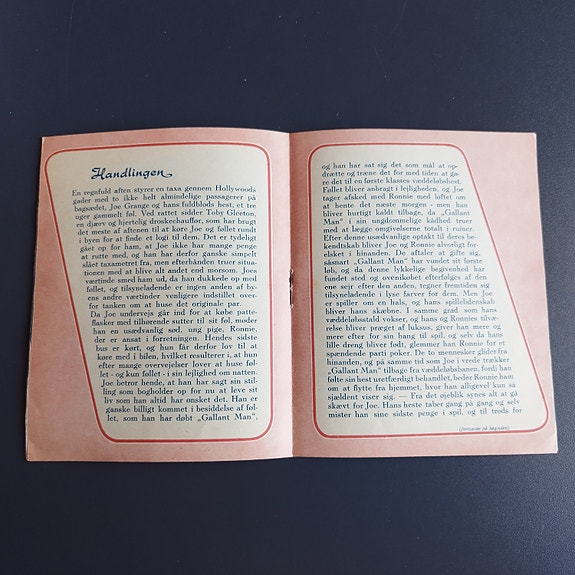 Handlingen
En regnfuld aften styrer en taxa gennem Hollywoods
gader med to ikke helt almindelige passagerer på
bagsædet, Joe Grange og hans fuldblods hest, et tre
uger gammelt føl. Ved rattet sidder Toby Gleeton,
en djærv og hjertelig droskechauffør, som har brugt
det meste af aftenen til at køre Joe og føllet rundt
i byen for at finde et logi til dem. Det er tydeligt
gået op for ham, at Joe ikke har mange penge
at rutte med, og han har derfor ganske simpelt
slået taxametret fra, men efterhånden truer situa-
tionen med at blive alt andet end morsom. Joes
værtinde smed ham ud, da han dukkede op med
føllet, og tilsyneladende er ingen anden af by-
ens andre værtinder venligere indstillet over-
for tanken om at huse det originale par.
Da Joe undervejs går ind for at købe patte-
flasker med tilhørende sutter til sit føl, møder
han en usædvanlig sød, ung pige, Ronnie,
der er ansat i forretningen. Hendes sidste
bus er kørt, og hun får derfor lov til at
køre med i bilen, hvilket resulterer i, at hun
efter mange overvejelser lover at huse føl-
let - og kun føllet - i sin lejlighed om natten.
Joe betror hende, at han har sagt sin stil-
ling som bogholder op for nu at leve sit
liv som han altid har ønsket det. Han er
ganske billigt kommet i besiddelse af føl-
let, som han har døbt „Gallant Man",
og han har sat sig det som mål at op-
drætte og træne det for med tiden at gø-
re det til en første klasses væddeløbshest.
Føllet bliver anbragt i lejligheden, og Joe
tager afsked med Ronnie med løftet om
at hente det næste morgen - men han
bliver hurtigt kaldt tilbage, da „Gallant
Man" i sin ungdommelige kådhed truer
med at lægge omgivelserne totalt i ruiner.
Efter denne usædvanlige optakt til deres be-
kendtskab bliver Joe og Ronnie alvorligt for-
elsket i hinanden. De aftaler at gifte sig,
såsnart „Gallant Man" har vundet sit første
løb, og da denne lykkelige begivenhed har
fundet sted og ovenikøbet efterfølges af den
ene sejr efter den anden, tegner fremtiden sig
tilsyneladende i lyse farver for dem. Men Joe
er spiller om en hals, og hans spillelidenskab
bliver hans skæbne. I samme grad som hans
væddeløbsstald vokser, og hans og Ronnies tilvæ-
relse bliver præget af luksus, giver han mere og
mere efter for sin hang til spil, og selv da hans
lille dreng bliver født, glemmer han Ronnie for et
spændende parti poker. De to mennesker glider fra
hinanden, og på samme tid som Joe i vrede trækker
„Gallant Man" tilbage fra væddeløbsbanen, fordi han
følte sin hest uretfærdigt behandlet, beder Ronnie ham
om at flytte fra hjemmet, hvor han alligevel kun så
sjældent viser sig. — Fra det øjeblik synes alt at gå
skævt for Joe. Hans heste taber gang på gang og selv
mister han sine sidste penge i spil, og til trods for
(fortsættes på bagsiden)